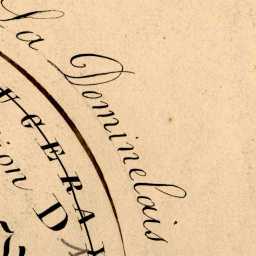 La Dominelais
UGERAY
ion D